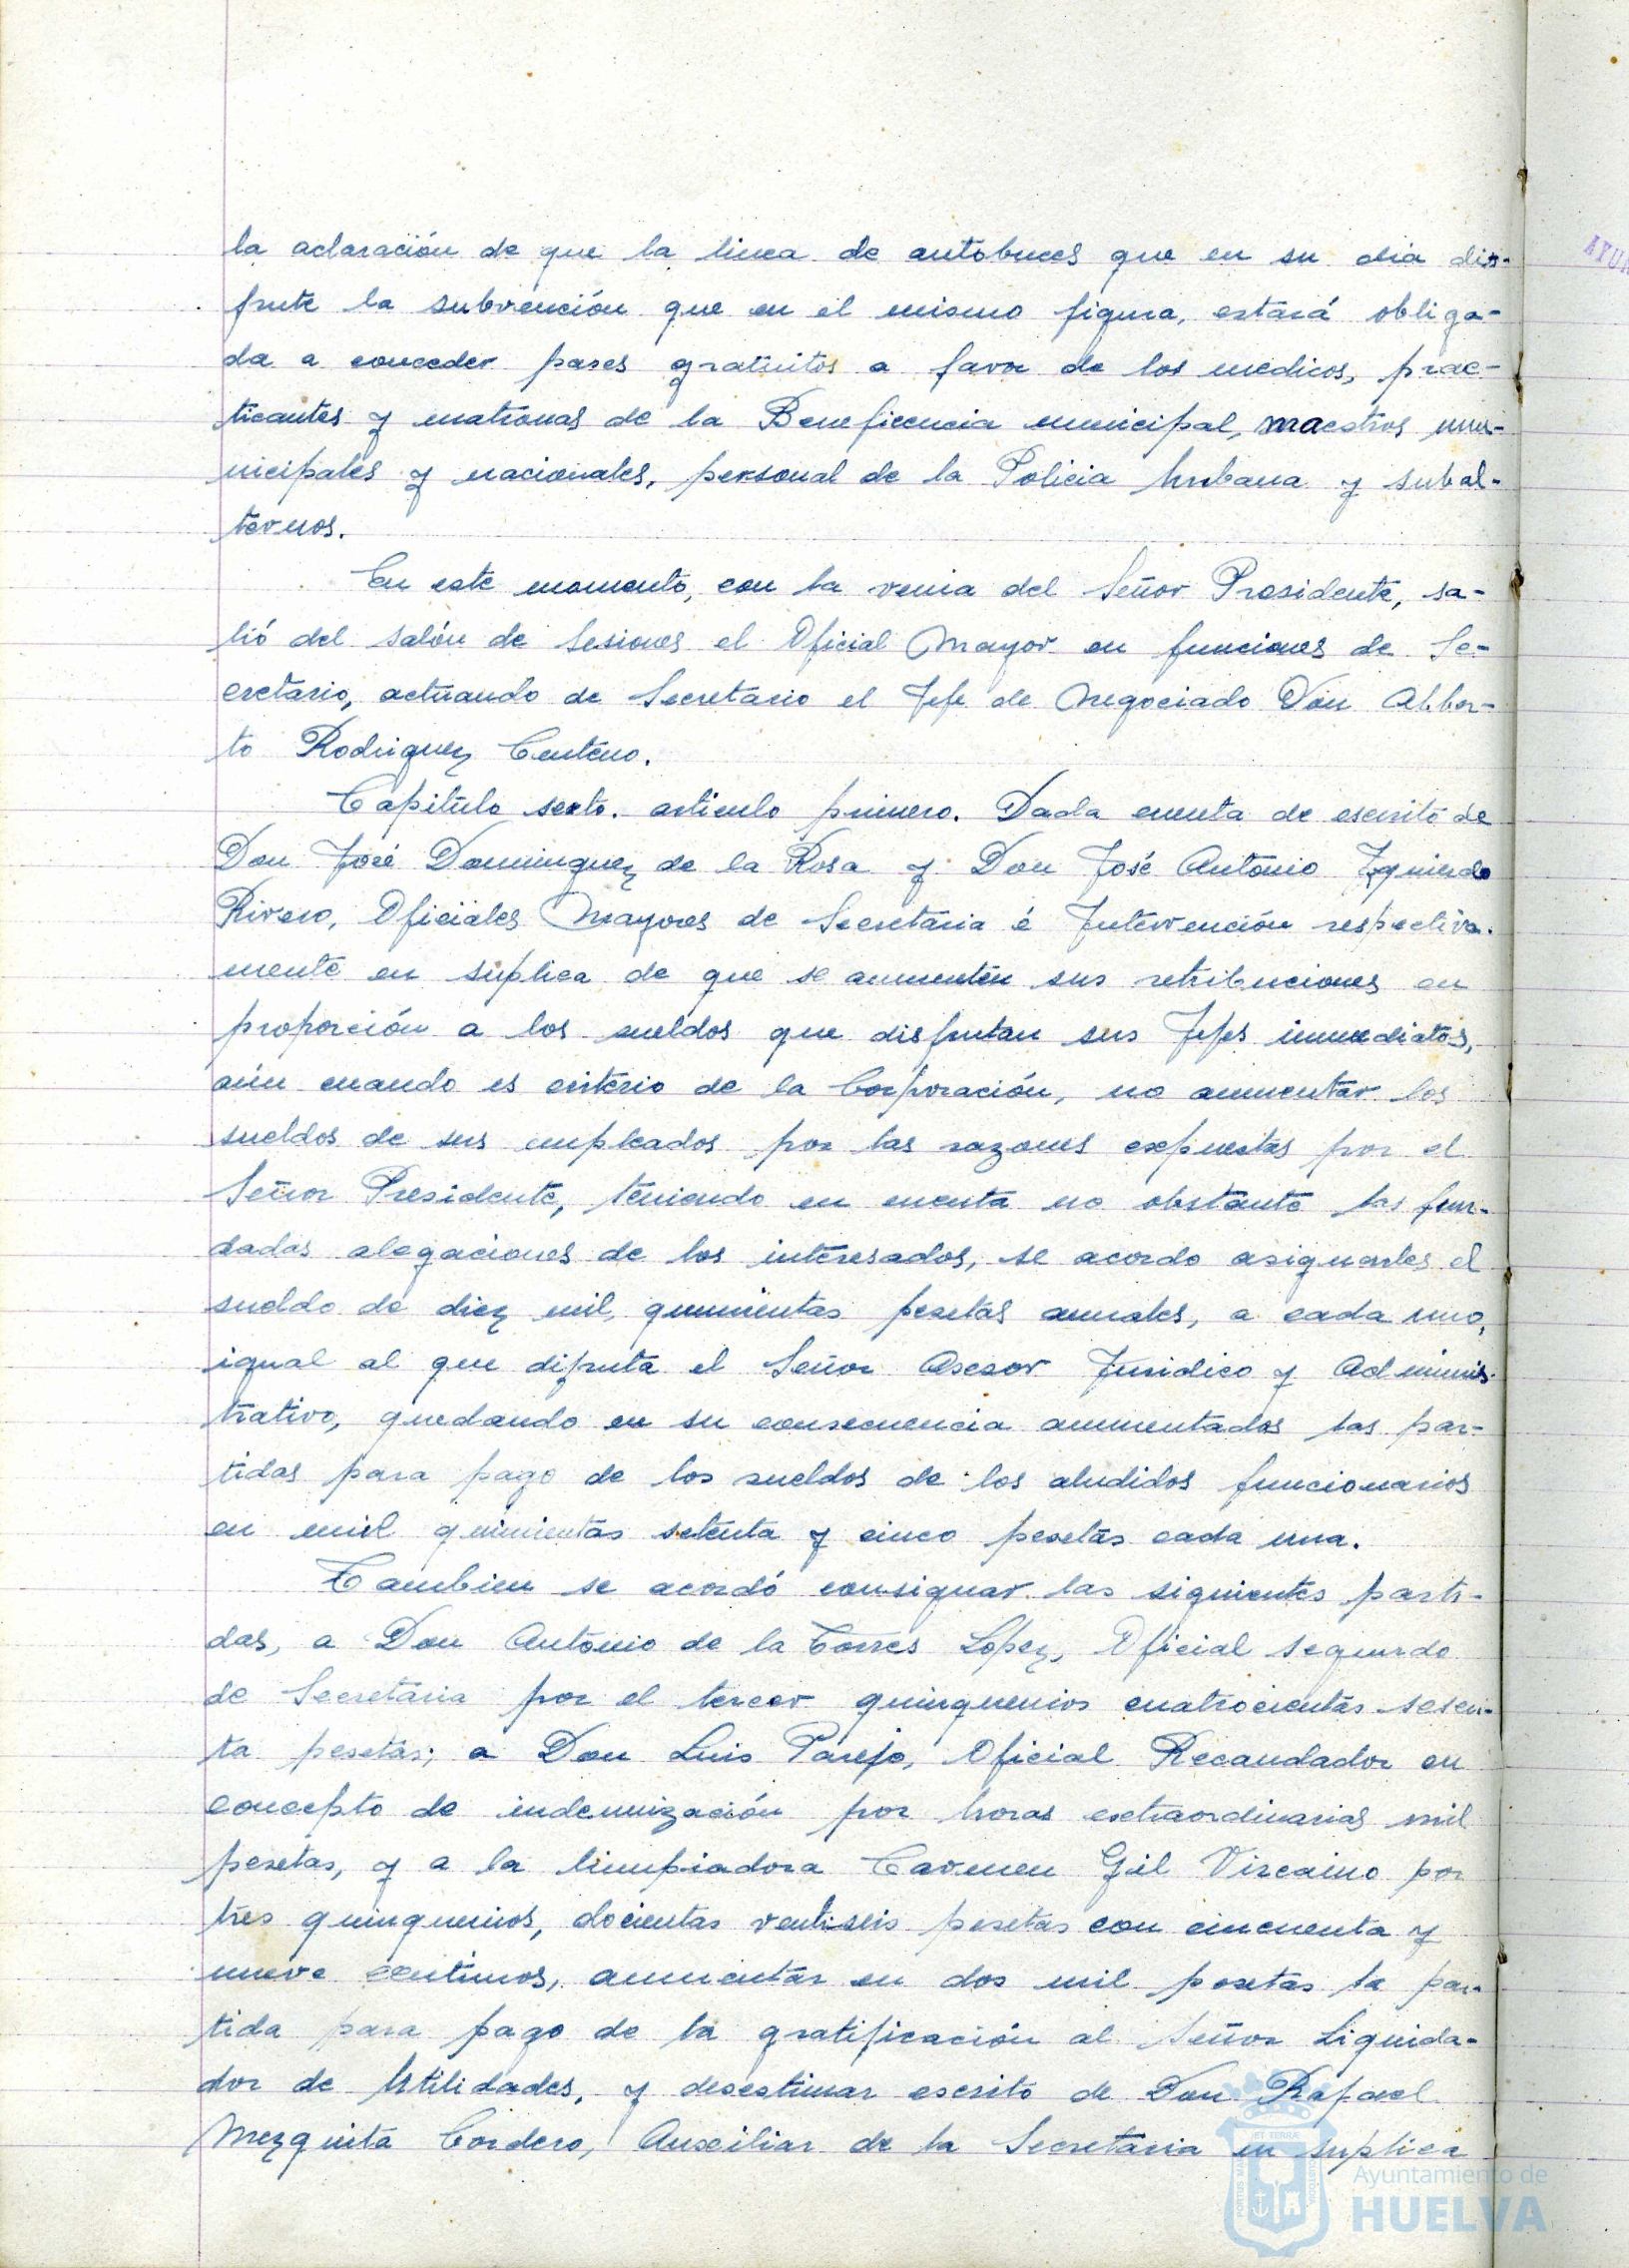 la aclaración de que la linea de autobuces que en su dia dis-
frute la subvención que en el mismo figura, estará obliga-
da a conceder pases gratuitos a favor de los medicos, prac-
ticantes y matronas de la Beneficencia municipal, maestros mu-
nicipales y nacionales, personal de la Policia Urbana y subal-
ternos.
En este momento, con la venia del Señor Presidente, sa-
lió del salón de Sesiones el Oficial Mayor en funciones de Se-
cretario, actuando de Secretario el Jefe de Negociado Don Alber-
to Rodriguez Centeno.
Capitulo sexto. articulo primero. Dada cuenta de escrito de
Don José Dominguez de la Rosa y Don José Antonio Izquierdo
Rivero, Oficiales Mayores de Secretaria é Intervención respectiva-
mente en suplica de que se aumenten sus retribuciones en
proporción a los sueldos que disfrutan sus Jefes inmediatos,
aún cuando es criterio de la Corporación, no aumentar los
sueldos de sus empleados por las razones expuestas por el
Señor Presidente, teniendo en cuenta no obstante las fun-
dadas alegaciones de los interesados, se acordo asignarles el
sueldo de diez mil quinientas pesetas anuales, a cada uno,
igual al que difruta el Señor Asesor Juridico y Adminis-
trativo, quedando en su consecuencia aumentadas las par-
tidas para pago de los sueldos de los aludidos funcionarios
en mil quinientas setenta y cinco pesetas cada una.
Tambien se acordó consignar las siguientes parti-
das, a Don Antonio de la Torres Lopez, Oficial segundo
de Secretaria por el tercer quinquenios cuatrocientas sesen-
ta pesetas; a Don Luis Parejo, Oficial Recaudador en
concepto de indemnización por horas extraordinarias mil
pesetas, y a la limpiadora Carmen Gil Vizcaino por
tres quinquenios, docientas ventiseis pesetas con cincuenta y
nueve centimos, aumentar en dos mil pesetas la par-
tida para pago de la gratificación al Señor Liquida-
dor de Utilidades, y desestimar escrito de Don Rafael
Mezquita Cordero, Auxiliar de la Secretaria en suplica
Ayuntamiento de
HUELVA